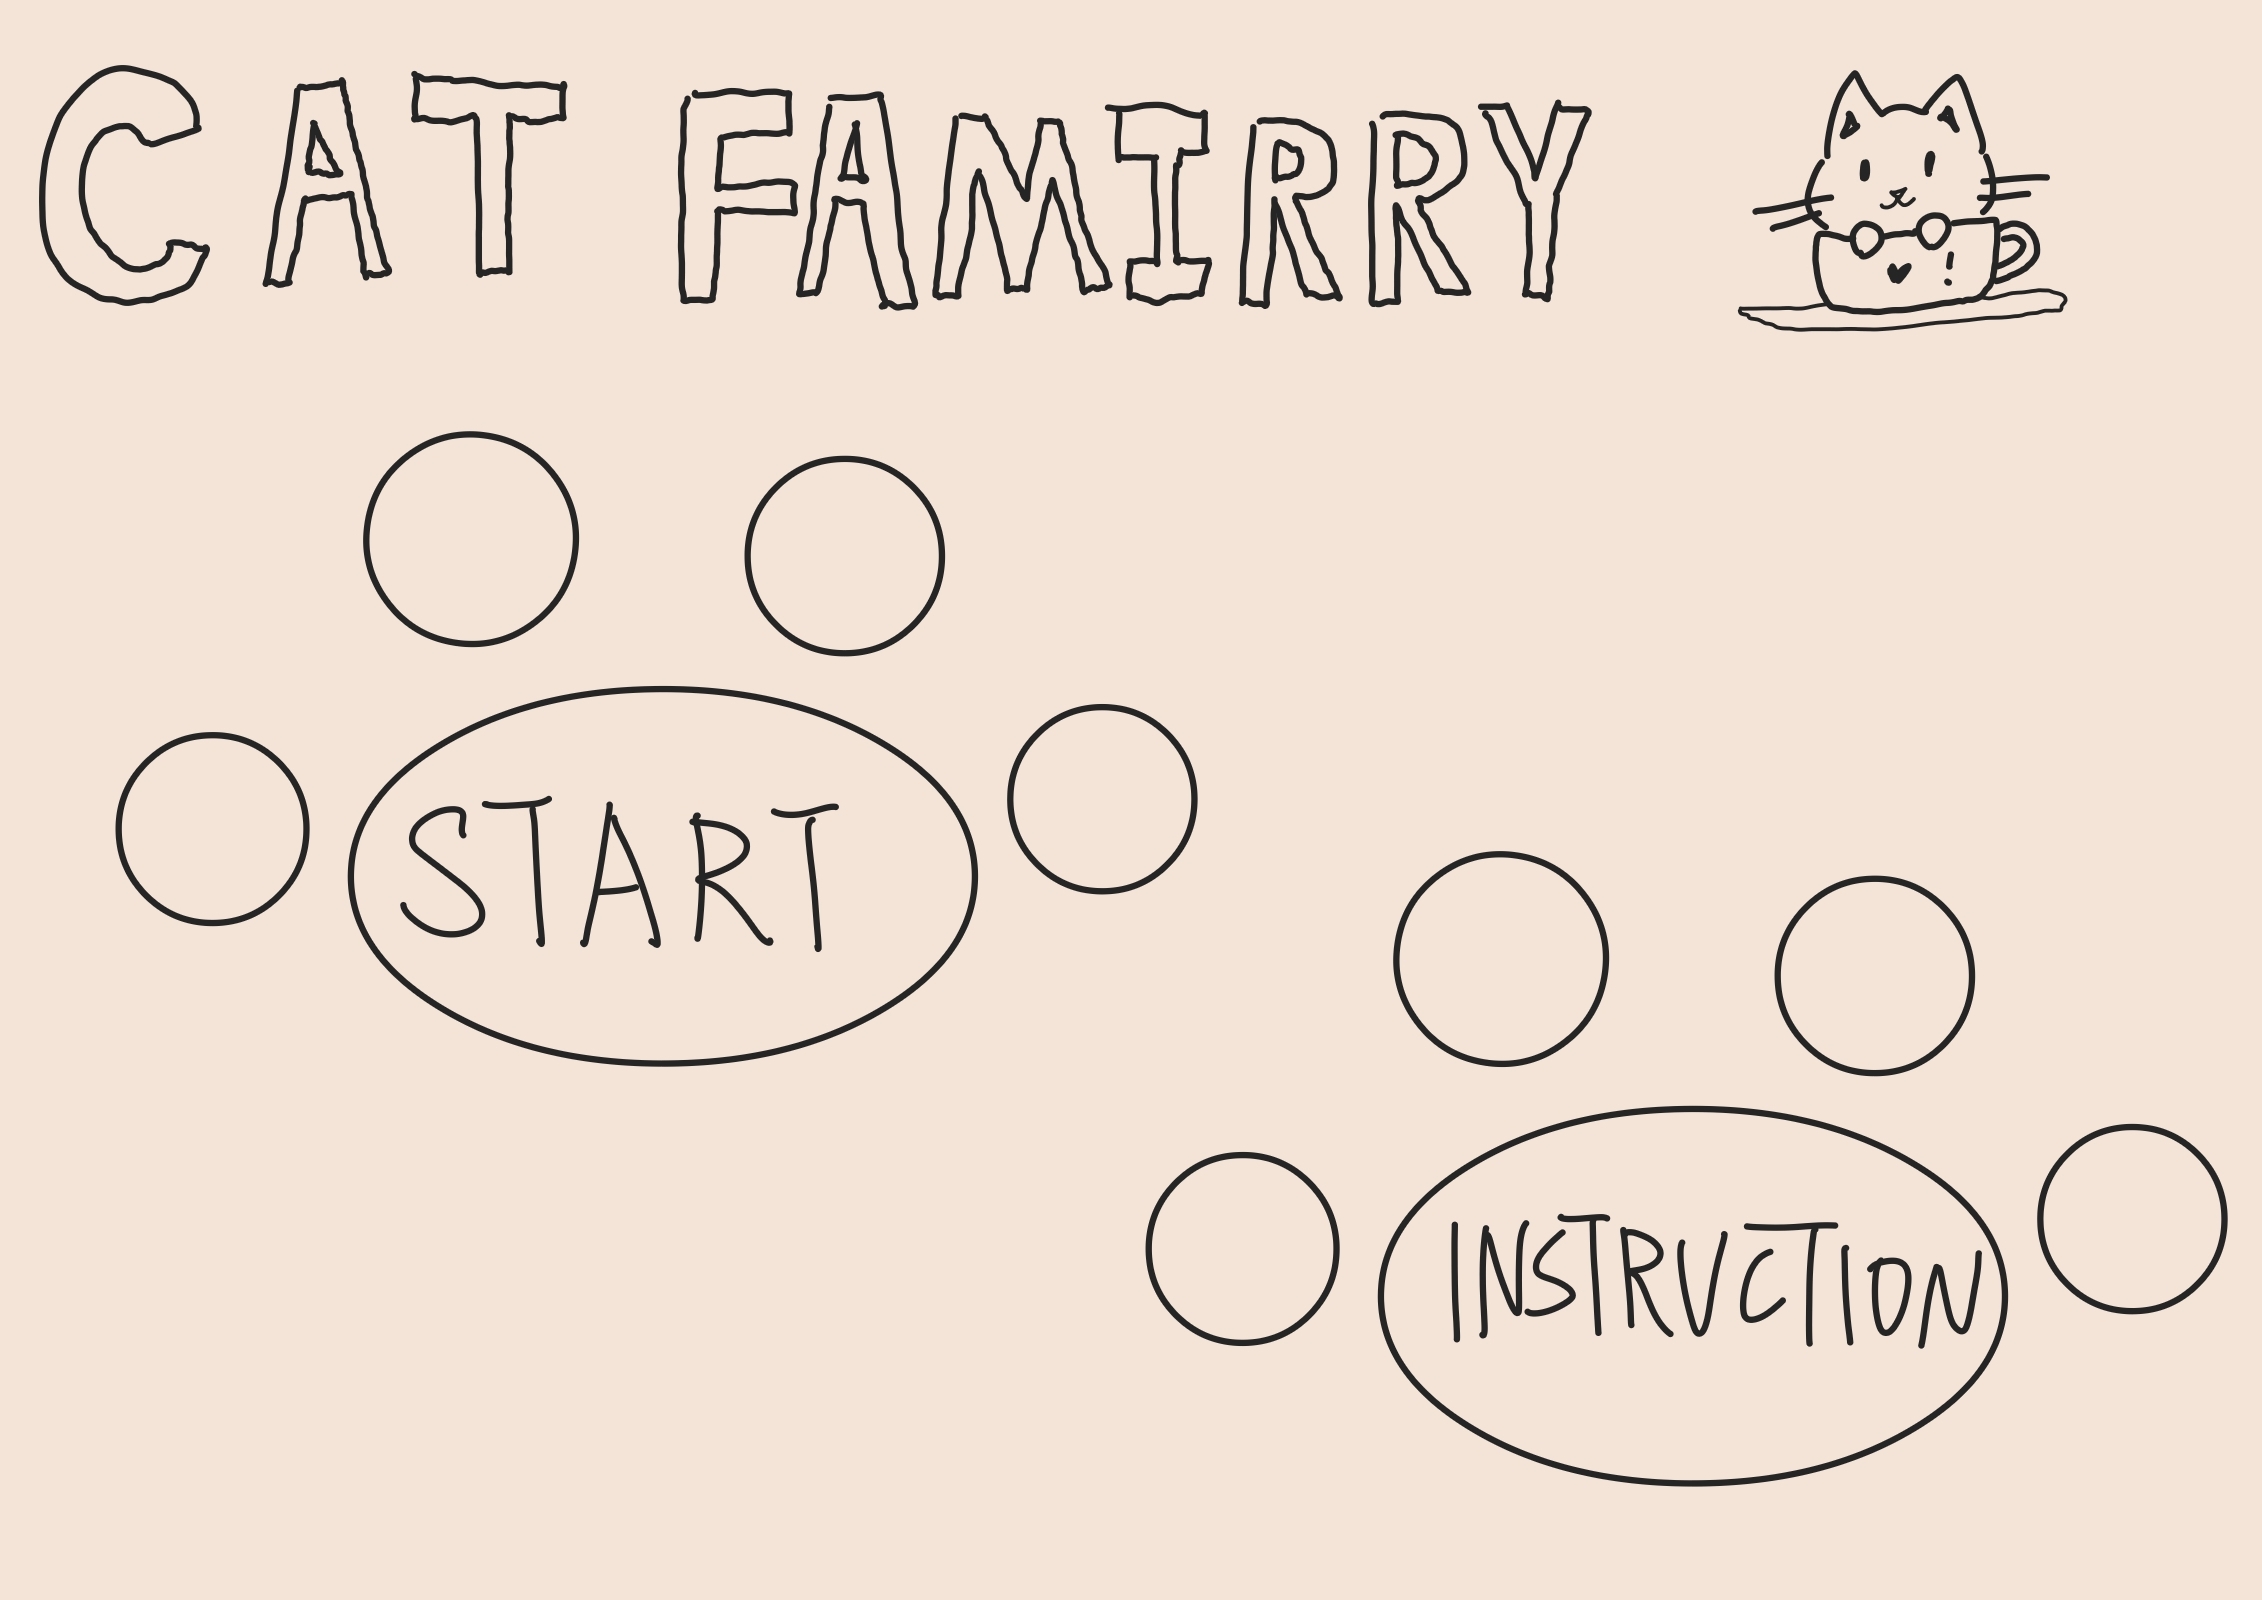 CAT FAMIRRY
START
INSTRUCTION